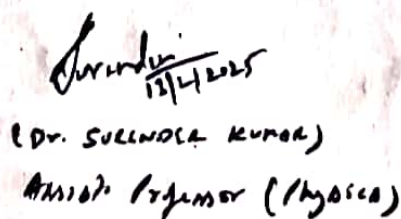 Surender
13/2/2025
(Dr. SURENDER KUMAR)
Assist. Professor (Physics)